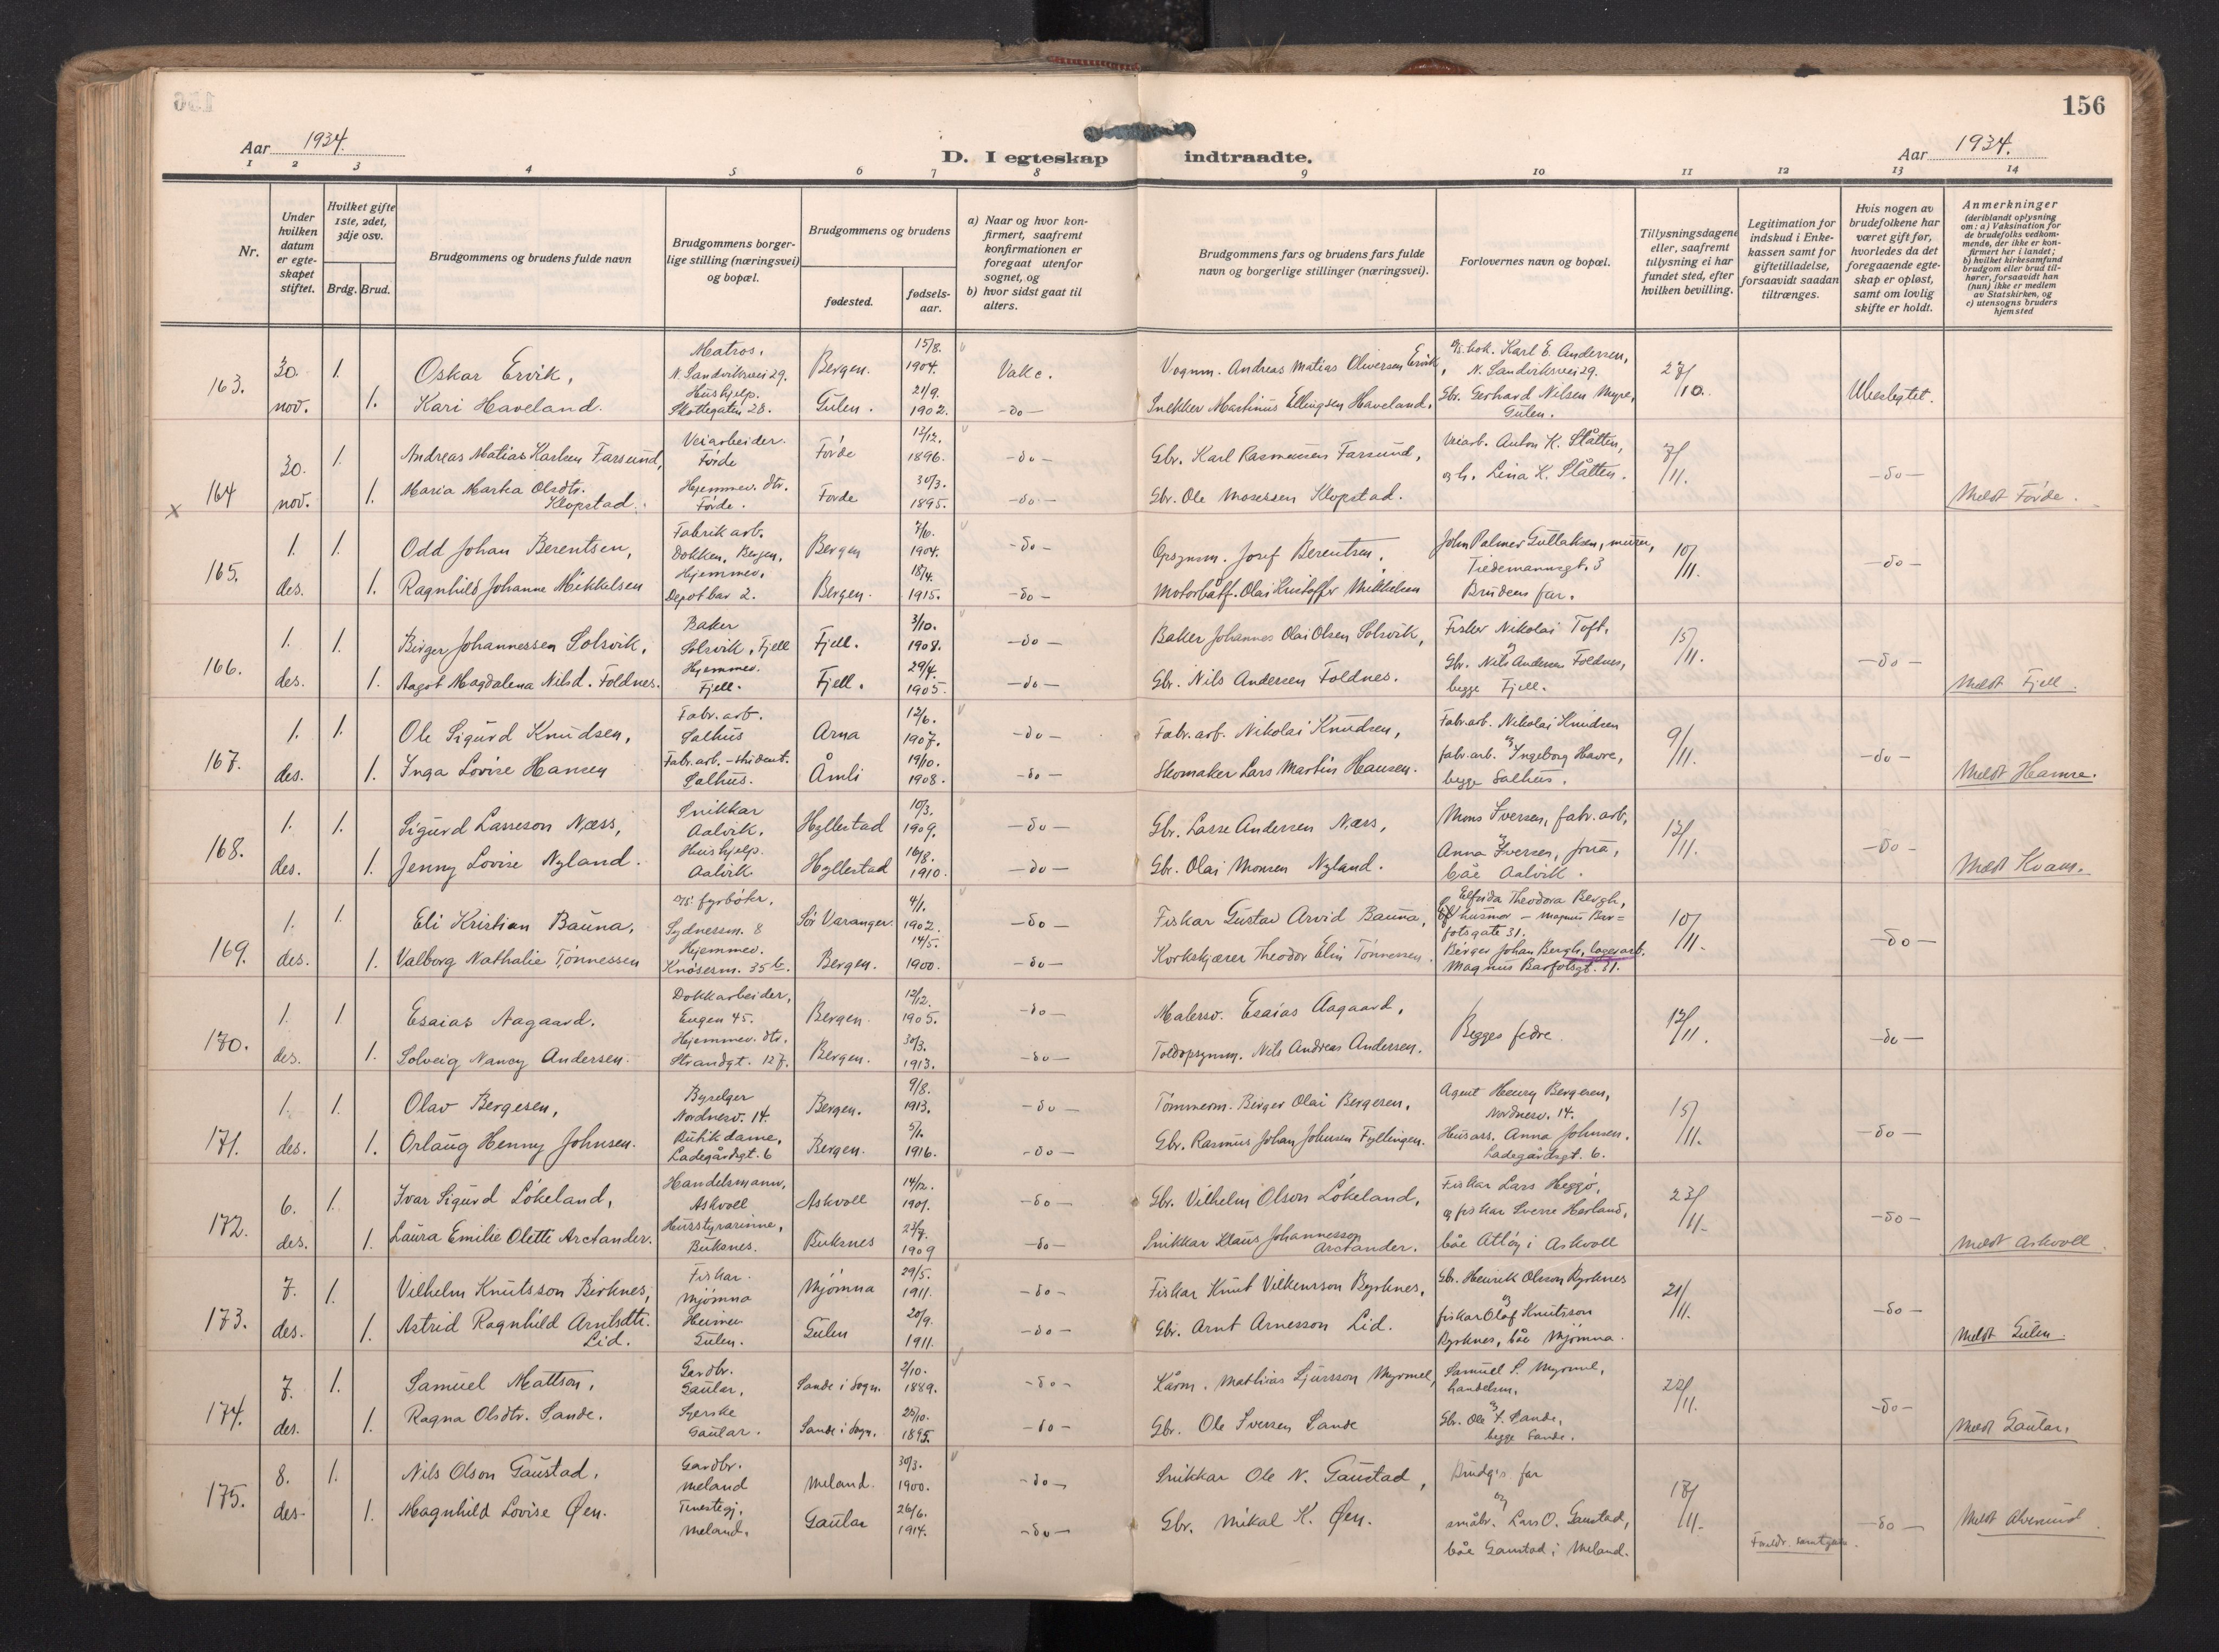 156
Aar 1934.
D. I egteskap indtraadte.
Aar 1934.
1 2 3 4 5 6 7 8 9 10 11 12 13 14
Nr.
Under hvilken datum er egteskapet stiftet.
Hvilket gifte 1ste, 2det, 3dje osv.
Brdg. Brud.
Brudgommens og brudens fulde navn
Brudgommens borgerlige stilling (næringsvei) og bopæl.
Brudgommens og brudens
fødested.
fødselsaar.
a) Naar og hvor konfirmert, saafremt konfirmationen er foregaat utenfor sognet, og
b) hvor sidst gaat til alters.
Brudgommens fars og brudens fars fulde navn og borgerlige stillinger (næringsvei).
Forlovernes navn og bopæl.
Tillysningsdagene eller, saafremt tillysning ei har fundet sted, efter hvilken bevilling.
Legitimation for indskud i Enkekassen samt for giftetilladelse, forsaavidt saadan tiltrænges.
Hvis nogen av brudefolkene har været gift før, hvorledes da det foregaaende egteskap er opløst, samt om lovlig skifte er holdt.
Anmerkninger (deriblandt oplysning om: a) Vaksination for de brudefolks vedkommende, der ikke er konfirmert her i landet; b) hvilket kirkesamfund brudgom eller brud tilhører, forsaavidt han (hun) ikke er medlem av Statskirken, og c) utensogns bruders hjemsted
163. 30. nov. 1. Oskar Ervik, Matros. N. Sandviksvei 29. Bergen. 15/8. 1904. Vake. Vognm. Andreas Matias Oliversen Ervik, Karl E. Andersen, N. Sandviksvei 29. 27/10. Ubeslegtet.
1. Kari Haveland. Hushjelp. Skottegaten 28. Gulen. 21/9. 1902. -do- Snekker Martinus Ellingsen Haveland. Gbr. Gerhard Nilsen Myre, Gulen.
x 164 30. nov. 1. Andreas Matias Karlsen Farsund, Veiarbeider. Førde Førde 13/12. 1896. -do- Gbr. Karl Rasmussen Farsund, Veiarb. Anton K. Slåtten, 7/11. -do- Meldt Førde.
1. Maria Marta Olsdtr. Klopstad. Hjemmev. dtr. Førde. Førde 30/3. 1895. -do- Gbr. Ole Mosessen Klopstad. og h. Lina K. Slåtten.
165. 1. des. 1. Odd Johan Berentsen, Fabrikarb. Dokken, Bergen, Bergen 7/6. 1904. -do- Opsynsm. Josef Berentsen, John Palmer Gullaksen, murer, Tiedemannsgt. 3 10/11. -do-
1. Ragnhild Johanne Mikkelsen Hjemmev. Depotbar 2. Bergen. 18/4. 1915. -do- Motorbåtf. Olai Kristoffer Mikkelsen Brudens far.
166. 1. des. 1. Birger Johannessen Solsvik, Baker Solsvik, Fjell Fjell. 3/10. 1908. -do- Baker Johannes Olai Olsen Solsvik, Fisker Nikolai Toft, og 15/11. -do- Meldt Fjell.
1. Aagot Magdalena Nilsd. Foldnes. Hjemmev. Fjell. Fjell. 29/4. 1905. -do- Gbr. Nils Andersen Foldnes. Gbr. Nils Andersen Foldnes, begge Fjell.
167. 1. des. 1. Ole Sigurd Knudsen, Fabr.arb. Salhus Arna 12/6. 1907. -do- Fabr.arb. Nikolai Knudsen, Fabr.arb. Nikolai Knudsen og 9/11. -do- Meldt Hamre.
1. Inga Lovise Hansen Fabr.arb. Salhus. Åmli 19/10. 1908. -do- Skomaker Lars Martin Hansen. fabr.arb. Ingeborg Havre, begge Salhus.
168. 1. des. 1. Sigurd Lasseson Næss, Snikkar Aalvik. Hyllestad 10/3. 1909. -do- Gbr. Lasse Andersen Næss, Mons Iversen, fabr.arb, og 12/11. -do- Meldt Kvam.
1. Jenny Lovise Nyland. Hushjelp. Aalvik. Hyllestad 16/8. 1910. -do- Gbr. Olai Monsen Nyland. Anna Iversen, frua, båe Aalvik.
169. 1. des. 1. Eli Kristian Bauna, fyrbøter, Sydnessm. 8 Sør Varanger. 4/1. 1902. -do- Fiskar Gustav Arvid Bauna, Elfrida Theodora Bergh, husmor – Magnus Barfotsgate 31. 10/11. -do-
1. Valborg Nathalie Tønnessen Hjemmev. Knøsesm. 35 b. Bergen. 14/5. 1900. -do- Korkskjærer Theodor Elin Tønnessen. Birger Johan Bergh, lagerarb. Magnus Barfotsgt. 31.
170. 1. des. 1. Esaias Aagaard. Dokkarbeider, Engen 45. Bergen. 12/12. 1905. -do- Malersv. Esaias Aagaard, Begges fedre 12/11. -do-
1. Solveig Nancy Andersen. Hjemmev. dtr. Strandgt. 127. Bergen. 30/3. 1913. -do- Toldopsynsm. Nils Andreas Andersen.
171. 1. des. 1. Olav Bergesen, Byselger Nordnesv. 14. Bergen. 9/8. 1913. -do- Tømmerm. Birger Olai Bergesen, Agent Henry Bergesen, Nordnesv. 14. 15/11. -do-
1. Orlaug Henny Johnsen. Butikdame, Ladegårdsgt. 6 Bergen. 5/1. 1916. -do- Gbr. Rasmus Johan Johnsen Fyllingen. Husass. Anna Johnsen. Ladegårdsgt. 6.
172. 6. des. 1. Ivar Sigurd Løkeland, Handelsmann, Askvoll Askvoll 14/12. 1901. -do- Gbr. Vilhelm Olson Løkeland, Fiskar Lars Heggø, 23/11. -do- Meldt Askvoll.
1. Laura Emilie Olette Arctander. Husstyrarinne, Buksnes. Buksnes 23/7. 1909 -do- Snikkar Klaus Johannesson Arctander. og fiskar Sverre Herland, båe Atløy i Askvoll
173. 7. des. 1. Vilhelm Knutsson Birknes, Fiskar. Mjømna Mjømna 29/5. 1911. -do- Fiskar Knut Vilhemsson Byrknes, Gbr. Henrik Olsson Byrknes og 21/11. -do- Meldt Gulen.
1. Astrid Ragnhild Arntsdtr. Lid. Heime Gulen. Gulen 20/9. 1911. -do- Gbr. Arnt Arnesson Lid. fiskar Olaf Knutsson Byrknes, båe Mjømna.
174. 7. des. 1. Samuel Mattson, Gardbr. Gaular, Sande i Sogn. 2/10. 1889. -do- Kårm. Mathias Sjursson Myrmel, Samuel S. Myrmel, handelsm. og 22/11. -do- Meldt Gaular.
1. Ragna Olsdtr. Sande. Syerske Gaular. Sande i Sogn. 25/10. 1895. -do- Gbr. Ole Iversen Sande Gbr. Ole I. Sande, begge Sande.
175. 8. des. 1. Nils Olson Gaustad, Gardbr. Meland Meland. 30/3. 1900. -do- Snikkar Ole N. Gaustad, Brudg's far og 17/11. -do- Meldt Alversund.
1. Magnhild Lovise Øen. Tenestegj. Meland. Gaular 26/6. 1914. -do- Gbr. Mikal K. Øen. småbr. Lars O. Gaustad, båe Gaustad i Meland.